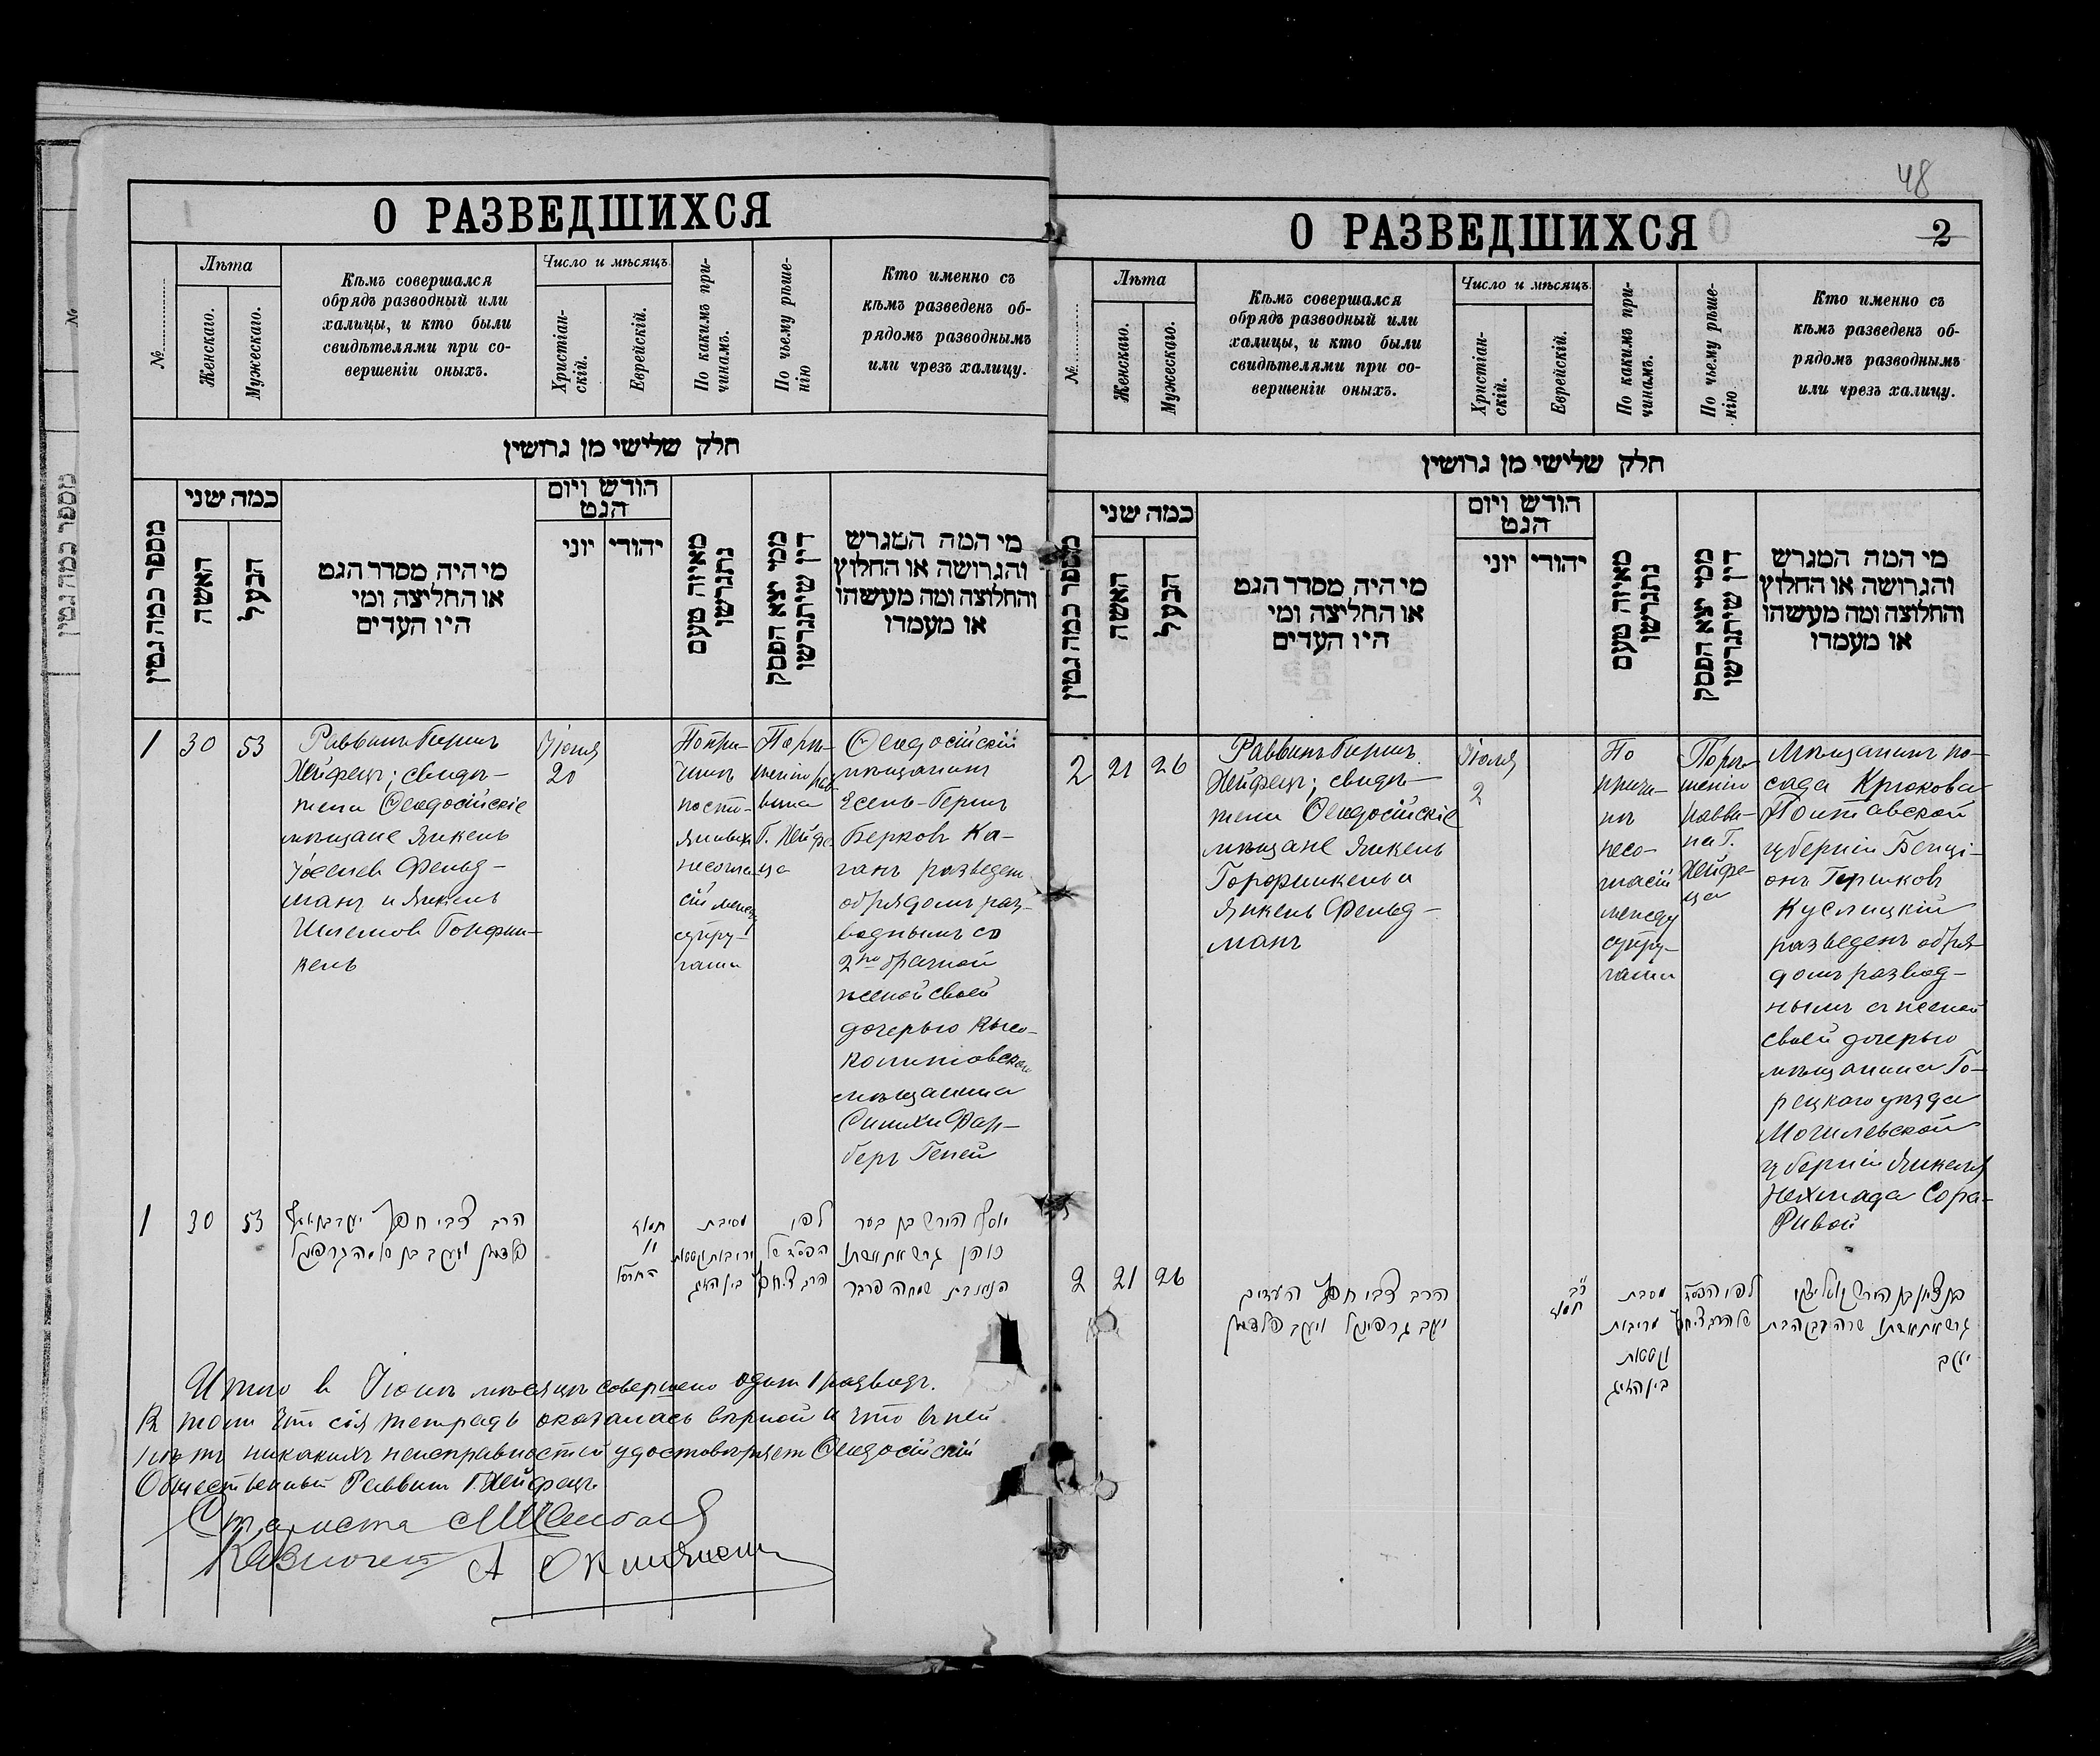 О РАЗВЕДШИХСЯ
№
Лѣта
Женскаго.
Мужескаго.
Кѣмъ совершался
обрядъ разводный или
халицы, и кто были
свидѣтелями при со-
вершеніи оныхъ.
Число и мѣсяцъ.
Христіан-
скій.
Еврейскій.
По какимъ при-
чинамъ.
По чьему рѣше-
нію
Кто именно съ
кѣмъ разведенъ об-
рядомъ разводнымъ
или чрезъ халицу.
חלק שלישי מן גרושין
מספר כמה גטין
כמה שני
האשה
הבעל
מי היה מסדר הגט
או החליצה ומי
היו העדים
הודש ויום
הגט
יוני
יהודי
מאיזה טעם
נתגרשו
ממי יצא הפסק
דין שיתגרשו
מי המה המגרש
והגרושה או החלוץ
והחלוצה ומה מעשהו
או מעמדו
1
30
53
Раввинъ Гиршъ
Хейфецъ; свидѣ-
тели Ѳеодосійскіе
мѣщане Янкель
Іоселев Фельд-
манъ и Янкель
Шлемов Горфин-
кель
Іюня
20
По при-
чинѣ
посто-
янныхъ
несогла-
сій между
супру-
гами
По рѣ-
шенію рав-
вина
Г. Хейфе-
ца
Ѳеодосійскій
мѣщанинъ
Іосель-Гершъ
Берковъ Ка-
ганъ разведенъ
обрядомъ раз-
воднымъ со
2но брачной
женой своей
дочерью Высо-
колитовскаго
мѣщанина
Симхи Фар-
беръ Геней
1
30
53
הרב צבי חפץ
פלדמן ויעקב בן שלמה גרפינקל
תמוז
מסיבת
בין הזוג
לפי
הפסד של
הרב צ. חפץ
יוסף הירש בן בער
כהן גרש את אשתו
שמחה פרבר
Итого въ Іюнѣ мѣсяцѣ совершено одинъ 1 разводъ.
В томъ что сія тетрадь оказалась вѣрной и что въ ней
нѣтъ никакихъ неисправностей удостовѣряетъ Ѳеодосійскій
Общественный Раввинъ Г. Хейфецъ
Староста
Казначей
А
48
О РАЗВЕДШИХСЯ
2
№
Лѣта
Женскаго.
Мужескаго.
Кѣмъ совершался
обрядъ разводный или
халицы, и кто были
свидѣтелями при со-
вершеніи оныхъ.
Число и мѣсяцъ.
Христіан-
скій.
Еврейскій.
По какимъ при-
чинамъ.
По чьему рѣше-
нію
Кто именно съ
кѣмъ разведенъ об-
рядомъ разводнымъ
или чрезъ халицу.
חלק שלישי מן גרושין
מספר כמה גטין
כמה שני
האשה
הבעל
מי היה מסדר הגט
או החליצה ומי
היו העדים
הודש ויום
הגט
יוני
יהודי
מאיזה טעם
נתגרשו
ממי יצא הפסק
דין שיתגרשו
מי המה המגרש
והגרושה או החלוץ
והחלוצה ומה מעשהו
או מעמדו
2
21
26
Раввинъ Гиршъ
Хейфецъ; свидѣ-
тели Ѳеодосійскіе
мѣщане Янкель
Горфинкель и
Янкель Фельд-
манъ
Іюля
2
По
причи-
нѣ
несо-
гласій
между
супру-
гами
По рѣ-
шенію
равви-
на Г.
Хейфе-
ца
Мѣщанинъ по-
сада Крюкова
Полтавской
губерніи Бенці-
онъ Гершковъ
Куслицкій
разведенъ обря-
домъ развод-
нымъ съ женой
своей дочерью
мѣщанина Го-
рецкаго уѣзда
Могилевской
губерніи Янкеля
Нехмада Сора-
Ривой
2
21
26
הרב צבי חפץ העדים
יעקב גרפינקל ויעקב פלדמן
תמוז
מסבת
מריבות
בין הזוג
לפי הפסד
של הרב צ. חפץ
בן ציון בן הירש
גרש את אשתו שרה רבקה בת
יעקב